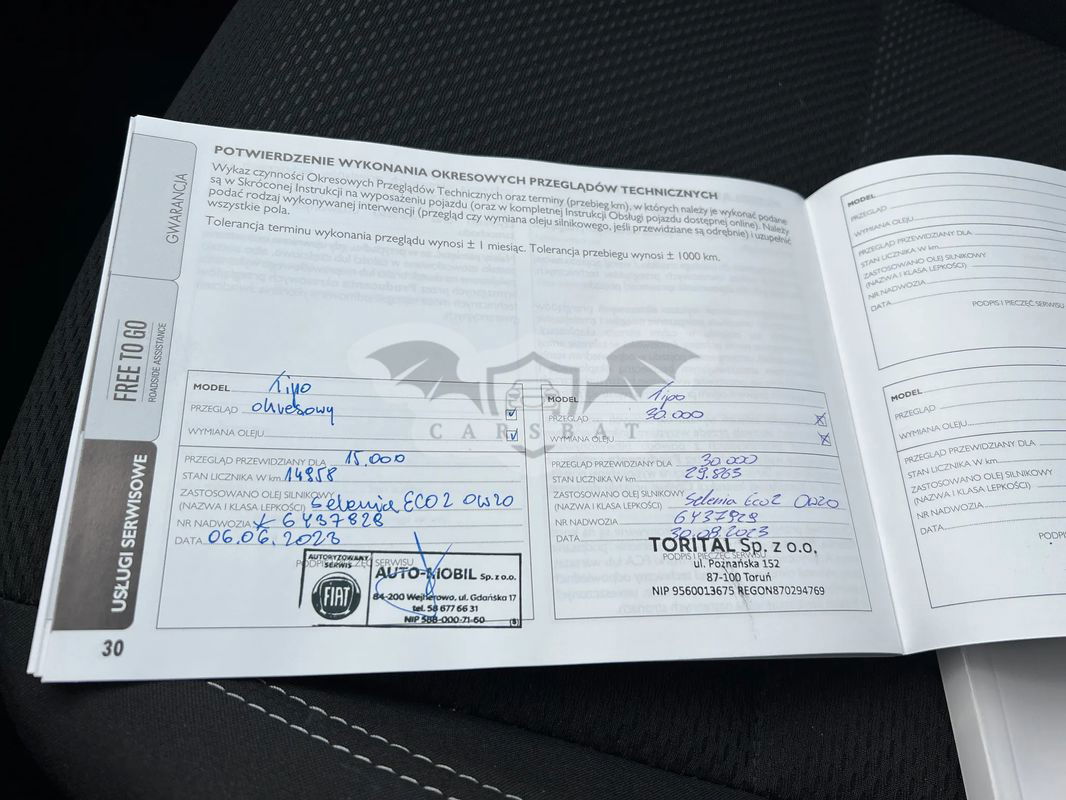 POTWIERDZENIE WYKONANIA OKRESOWYCH PRZEGLĄDÓW TECHNICZNYCH
Wykaz czynności Okresowych Przeglądów Technicznych oraz terminy (przebieg km), w których należy je wykonać podane
są w Skróconej Instrukcji na wyposażeniu pojazdu (oraz w kompletnej Instrukcji Obsługi pojazdu dostępnej online). Należy
podać rodzaj wykonywanej interwencji (przegląd czy wymiana oleju silnikowego, jeśli przewidziane są odrębnie) i uzupełnić
wszystkie pola.
Tolerancja terminu wykonania przeglądu wynosi ± 1 miesiąc. Tolerancja przebiegu wynosi ± 1000 km.
GWARANCJA
FREE TO GO
ROADSIDE ASSISTANCE
USŁUGI SERWISOWE
30
MODEL Tipo
PRZEGLĄD okresowy
WYMIANA OLEJU
PRZEGLĄD PRZEWIDZIANY DLA 15.000
STAN LICZNIKA W km 14958
ZASTOSOWANO OLEJ SILNIKOWY
(NAZWA I KLASA LEPKOŚCI) Selenia ECO2 0W20
NR NADWOZIA 6Y37828
DATA 06.06.2023
PODPIS I PIECZĘĆ SERWISU
AUTORYZOWANY
SERWIS
FIAT
AUTO-MOBIL Sp. z o.o.
84-200 Wejherowo, ul. Gdańska 17
tel. 58 677 66 31
NIP 588-000-71-60
MODEL Tipo
PRZEGLĄD 30.000
WYMIANA OLEJU
PRZEGLĄD PRZEWIDZIANY DLA 30.000
STAN LICZNIKA W km 29.863
ZASTOSOWANO OLEJ SILNIKOWY
(NAZWA I KLASA LEPKOŚCI) Selenia Eco2 0W20
NR NADWOZIA 6Y37828
DATA 30.08.2023
PODPIS I PIECZĘĆ SERWISU
TORITAL Sp. z o.o.
ul. Poznańska 152
87-100 Toruń
NIP 9560013675 REGON870294769
CARSBAT
MODEL
PRZEGLĄD
WYMIANA OLEJU
PRZEGLĄD PRZEWIDZIANY DLA
STAN LICZNIKA W km
ZASTOSOWANO OLEJ SILNIKOWY
(NAZWA I KLASA LEPKOŚCI)
NR NADWOZIA
DATA
PODPIS I PIECZĘĆ SERWISU
MODEL
PRZEGLĄD
WYMIANA OLEJU
PRZEGLĄD PRZEWIDZIANY DLA
STAN LICZNIKA W km
ZASTOSOWANO OLEJ SILNIKOWY
(NAZWA I KLASA LEPKOŚCI)
NR NADWOZIA
DATA